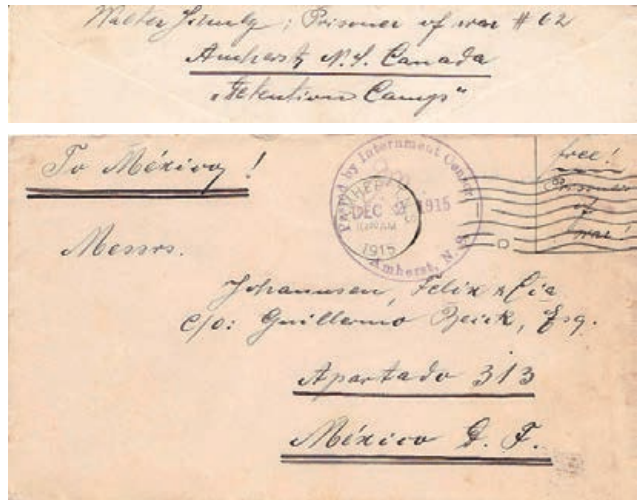 Walter Schulz; Prisoner of war # 62
Amherst, N.S. Canada
"Detention Camp"
To México!
Passed by Internment Censor
AMHERST N.S.
DEC 1915
1915
Amherst, N.S.
free!
Prisoner
of
war!
Messrs.
Johannsen, Felix & Cia
c/o: Guillermo Beick, Esq.
Apartado 313
México D. F.